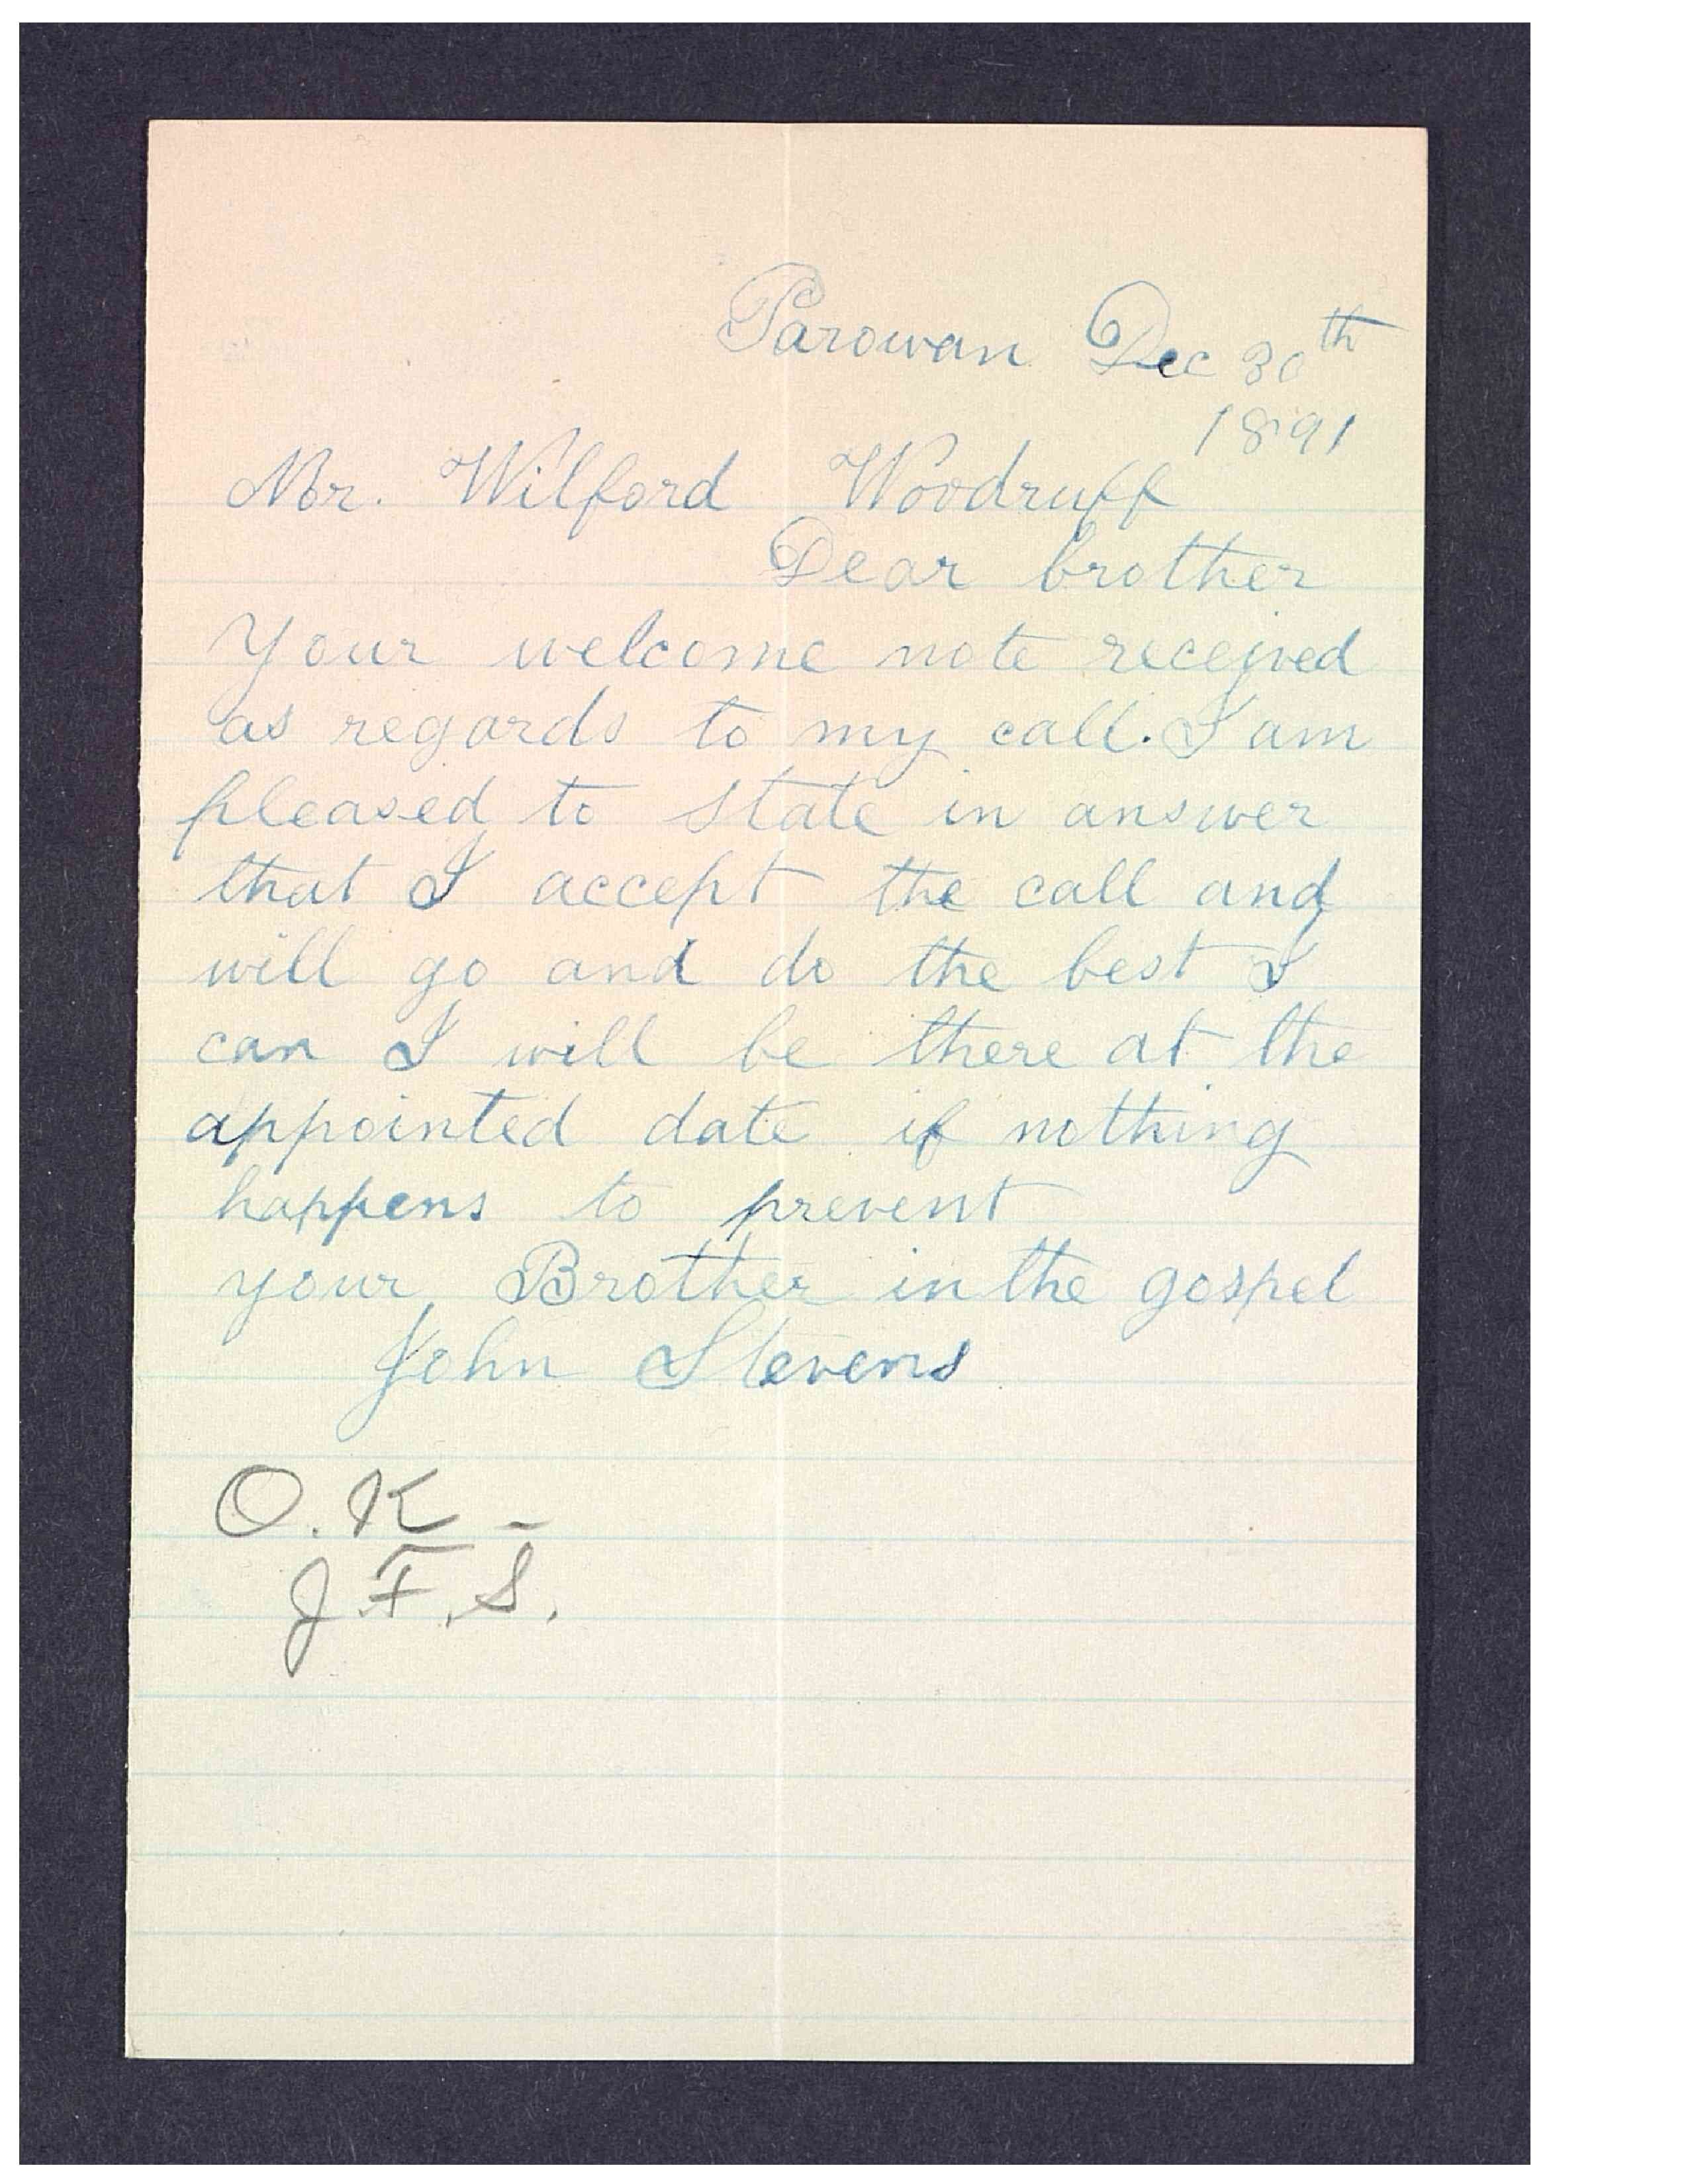 Parowan Dec 30th
1891
Mr. Wilford Woodruff
Dear brother
Your welcome note received
as regards to my call. I am
pleased to state in answer
that I accept the call and
will go and do the best I
can I will be there at the
appointed date if nothing
happens to prevent
your Brother in the gospel
John Stevens
O.K -
J.F.S.